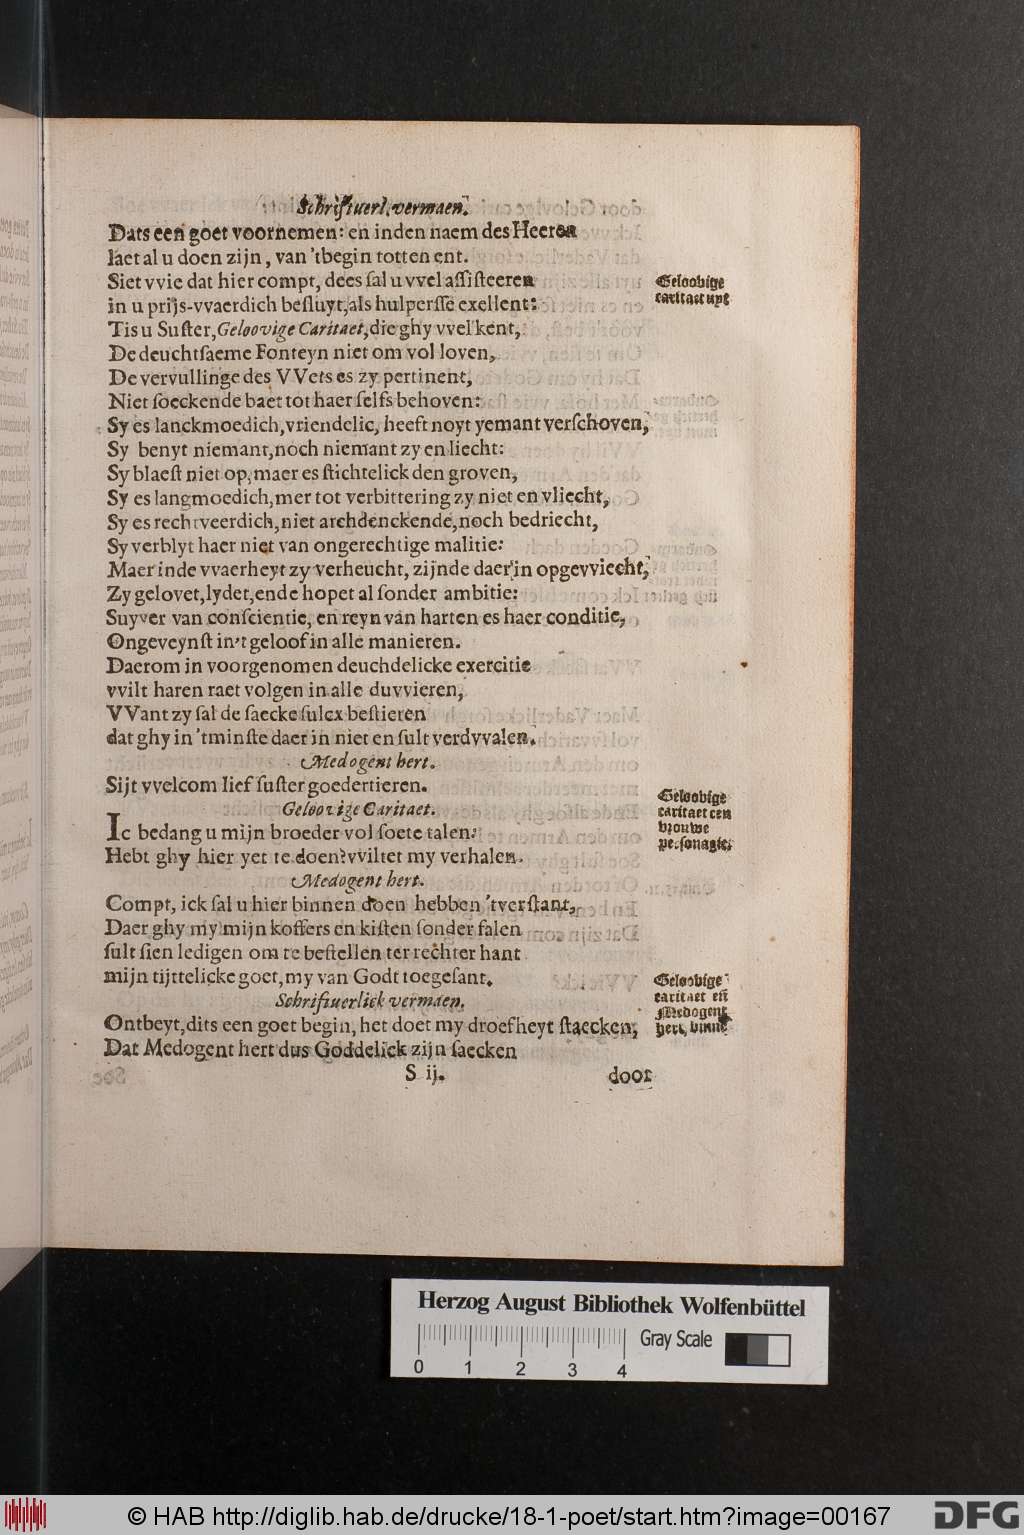 Schriftuerl. vermaen.
Dats een goet voornemen: en inden naem des Heeren
laet al u doen zijn, van 'tbegin totten ent.
Siet vvie dat hier compt, dees sal u vvel assisteeren
in u prijs-vvaerdich besluyt, als hulpersse exellent:
Geloovige
caritaet uyt
Tis u Suster, Geloovige Caritaet, die ghy vvel kent,
De deuchtsaeme Fonteyn niet om vol loven,
De vervullinge des VVets es zy pertinent,
Niet soeckende baet tot haer selfs behoven:
Sy es lanckmoedich, vriendelic, heeft noyt yemant verschoven,
Sy benyt niemant, noch niemant zy en liecht:
Sy blaest niet op, maer es stichtelick den groven,
Sy es langmoedich, mer tot verbittering zy niet en vliecht,
Sy es rechtveerdich, niet archdenckende, noch bedriecht,
Sy verblyt haer niet van ongerechtige malitie:
Maer inde vvaerheyt zy verheucht, zijnde daer in opgevviecht,
Zy gelovet, lydet, ende hopet al sonder ambitie:
Suyver van conscientie, en reyn van harten es haer conditie,
Ongeveynst in't geloof in alle manieren.
Daerom in voorgenomen deuchdelicke exercitie
vvilt haren raet volgen in alle duvvieren,
VVant zy sal de saecke sulcx bestieren
dat ghy in 'tminste daer in niet en sult verdvvalen.
Medogent hert.
Sijt vvelcom lief suster goedertieren.
Geloovige Caritaet.
Geloovige
caritaet een
vrouwe
personagie.
Ic bedang u mijn broeder vol soete talen:
Hebt ghy hier yet te doen? vviltet my verhalen.
Medogent hert.
Compt, ick sal u hier binnen doen hebben 'tverstant,
Daer ghy my mijn koffers en kisten sonder falen
sult sien ledigen om te bestellen ter rechter hant
mijn tijttelicke goet, my van Godt toegesant.
Schriftuerlick vermaen.
Geloovige
caritaet eñ
Medogent
hert, binnē
Ontbeyt, dits een goet begin, het doet my droefheyt staecken,
Dat Medogent hert dus Goddelick zijn saecken
S ij.
door
Herzog August Bibliothek Wolfenbüttel
Gray Scale
0 1 2 3 4
© HAB http://diglib.hab.de/drucke/18-1-poet/start.htm?image=00167
DFG